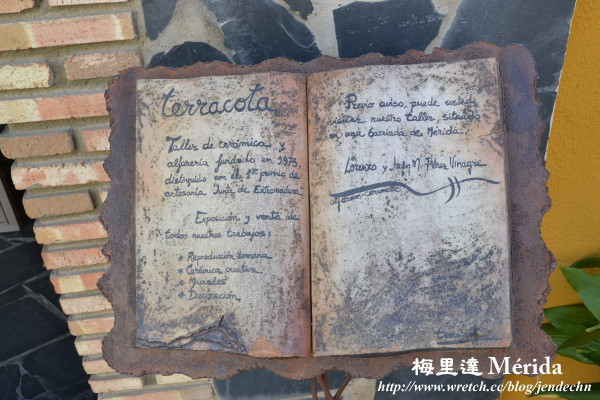 terracota
Taller de cerámica y
alfarería fundado en 1975,
distinguido con el 1er premio de
artesanía Junta de Extremadura
Exposición y venta de
todos nuestros trabajos:
* Reproducción Romana
* Cerámica creativa
* Murales
* Decoración
Previo aviso, puede usted
visitar nuestro taller, situado
en una barriada de Mérida...
Lorenzo y Juan M. Pérez Vinagre
梅里達 Mérida
http://www.wretch.cc/blog/jendechn